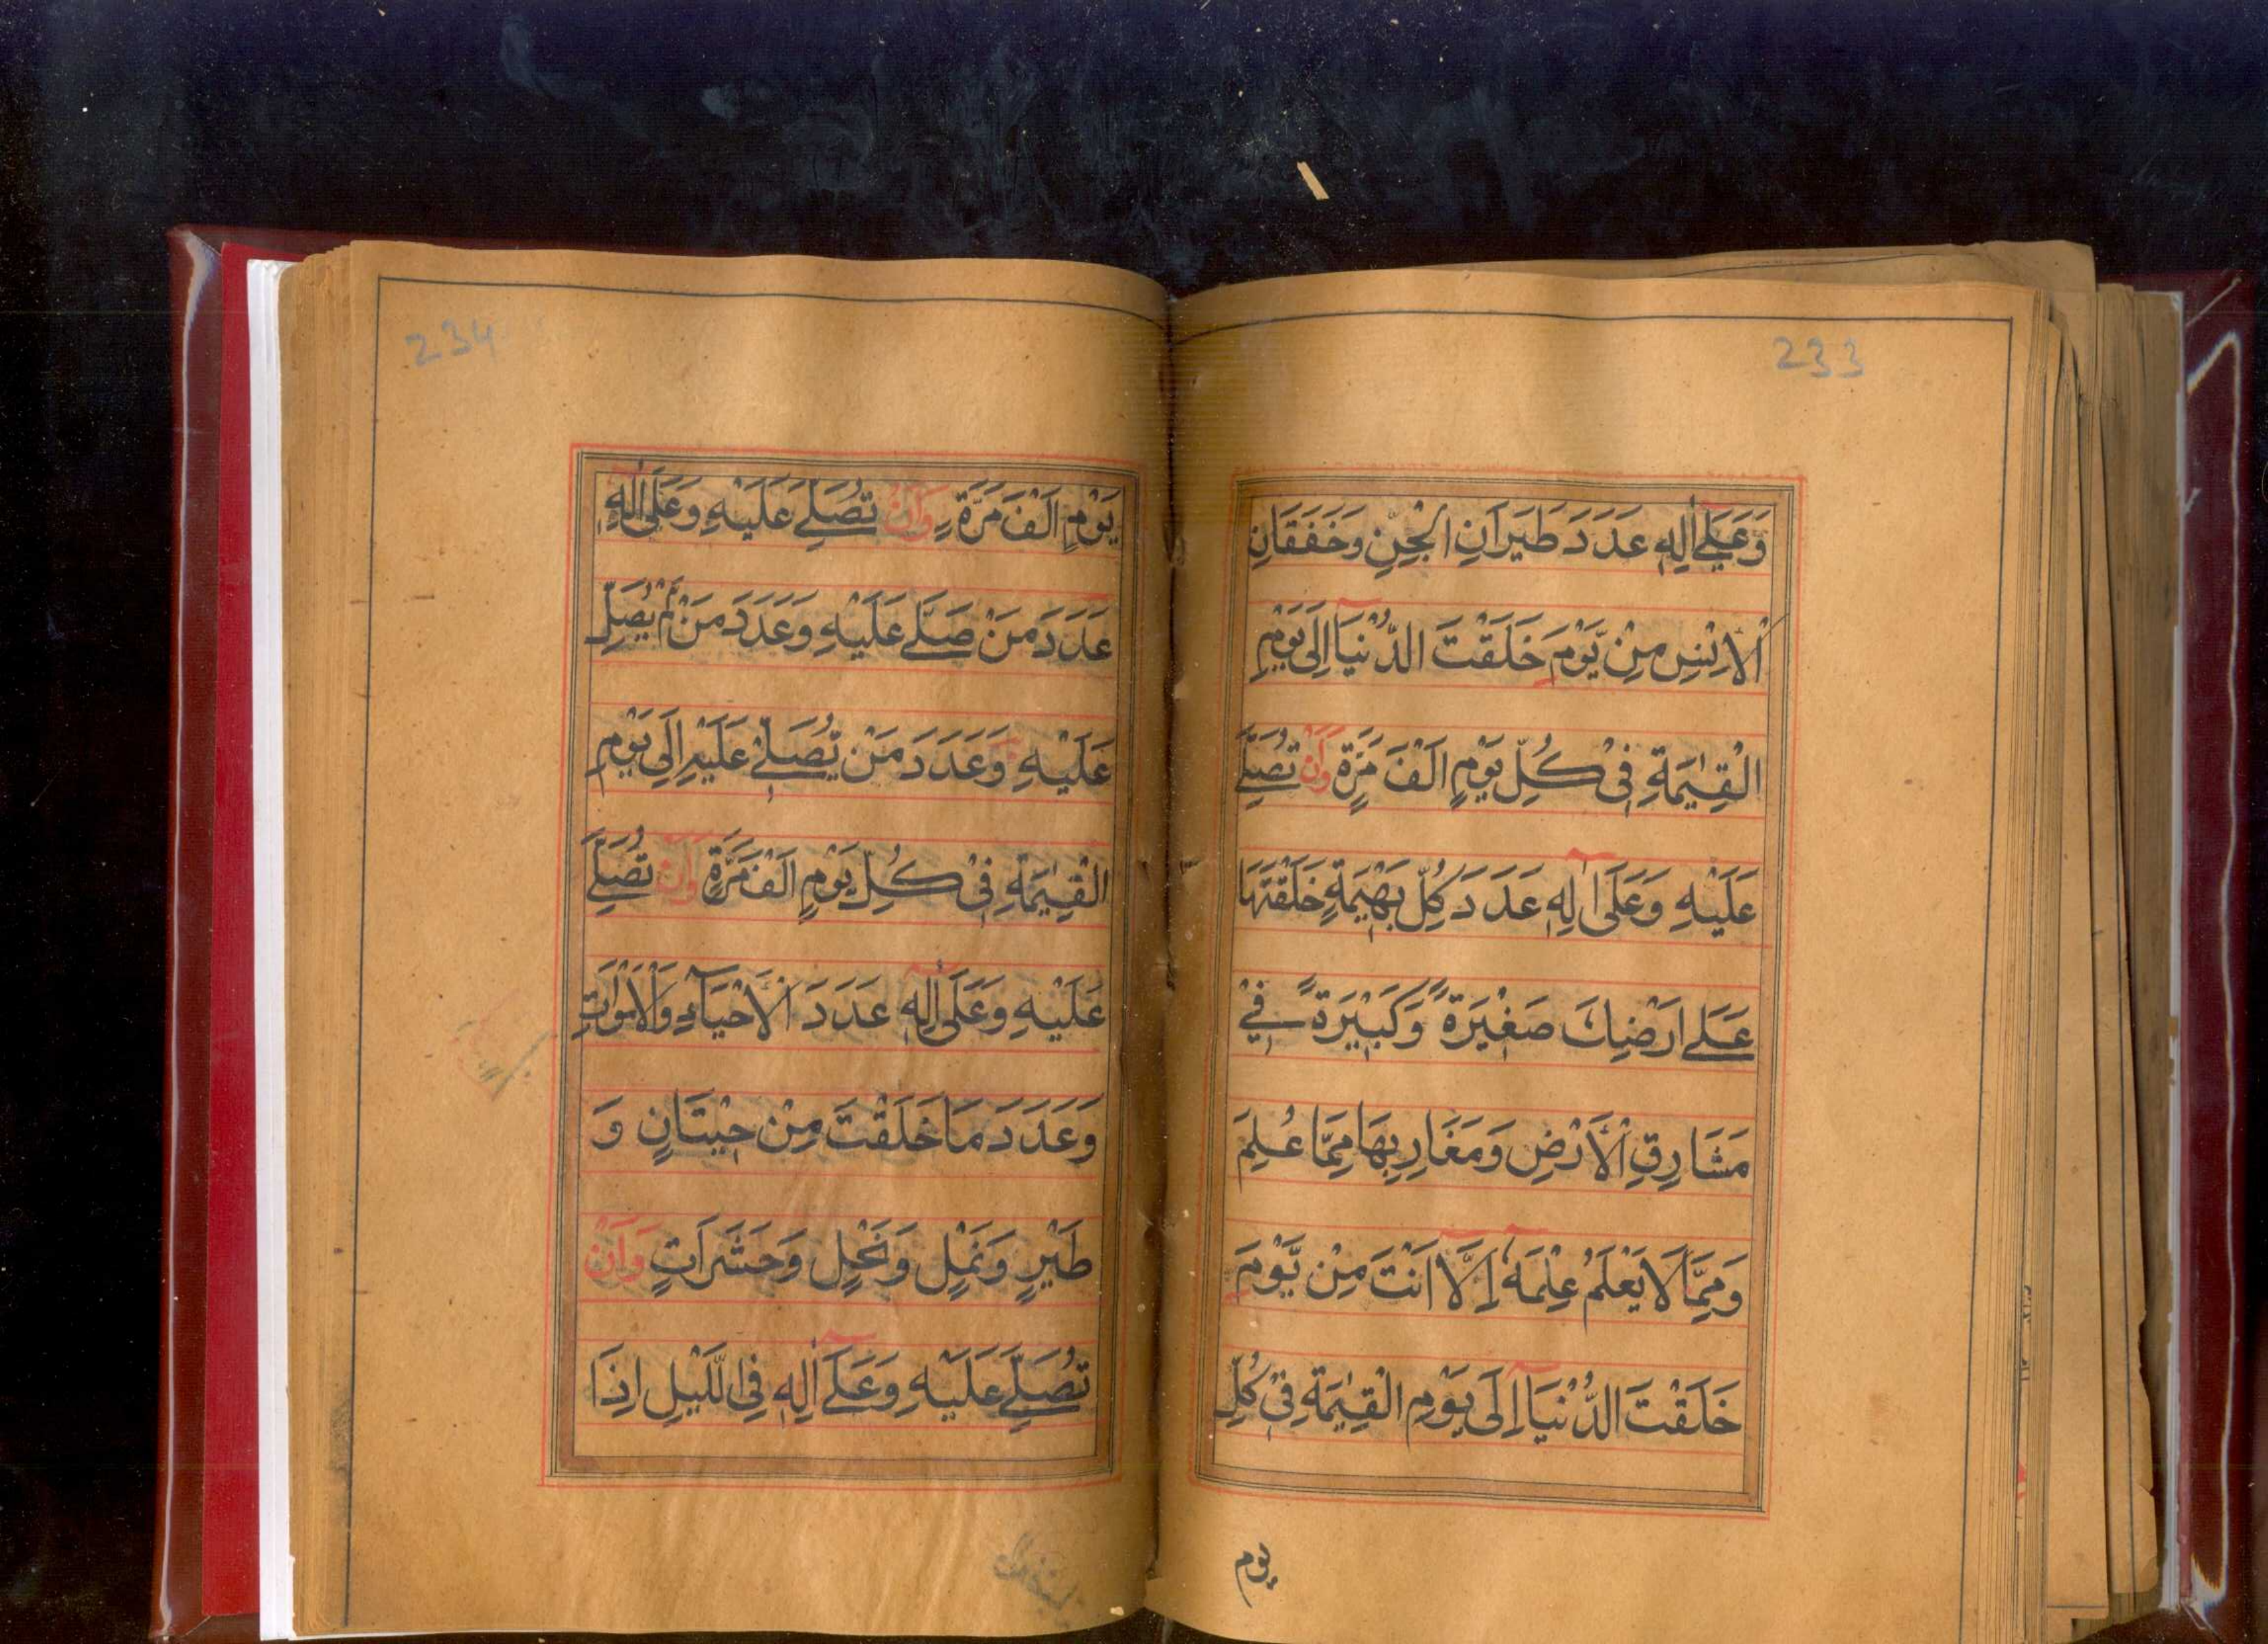 233
وَعَلٰٓى اٰلِهٖ عَدَدَ طَيَرَانِ الْجِنِّ وَخَفَقَانِ
الْاِنْسِ مِنْ يَّوْمَ خَلَقْتَ الدُّنْيَآ اِلٰى يَوْمِ
الْقِيٰمَةِ فِيْ كُلِّ يَوْمٍ اَلْفَ مَرَّةٍ وَاَنْ تُصَلِّيَ
عَلَيْهِ وَعَلٰٓى اٰلِهٖ عَدَدَ كُلِّ بَهِيْمَةٍ خَلَقْتَهَا
عَلٰے اَرْضِكَ صَغِيْرَةً وَّكَبِيْرَةً فِيْ
مَشَارِقِ الْاَرْضِ وَمَغَارِبِهَا مِمَّا عُلِمَ
وَمِمَّا لَا يَعْلَمُ عِلْمَهٗٓ اِلَّآ اَنْتَ مِنْ يَّوْمَ
خَلَقْتَ الدُّنْيَآ اِلٰى يَوْمِ الْقِيٰمَةِ فِيْ كُلِّ
يوم
234
يَوْمٍ اَلْفَ مَرَّةٍ وَاَنْ تُصَلِّيَ عَلَيْهِ وَعَلٰٓى اٰلِهٖ
عَدَدَ مَنْ صَلّٰے عَلَيْهِ وَعَدَدَ مَنْ لَّمْ يُصَلِّ
عَلَيْهِ وَعَدَدَ مَنْ يُّصَلِّيْ عَلَيْهِ اِلٰى يَوْمِ
الْقِيٰمَةِ فِيْ كُلِّ يَوْمٍ اَلْفَ مَرَّةٍ وَاَنْ تُصَلِّيَ
عَلَيْهِ وَعَلٰٓى اٰلِهٖ عَدَدَ الْاَحْيَآءِ وَالْاَمْوَاتِ
وَعَدَدَ مَا خَلَقْتَ مِنْ حِيْتَانٍ وَ
طَيْرٍ وَنَمْلٍ وَنَحْلٍ وَحَشَرَاتٍ وَاَنْ
تُصَلِّيَ عَلَيْهِ وَعَلٰٓى اٰلِهٖ فِي الَّيْلِ اِذَا